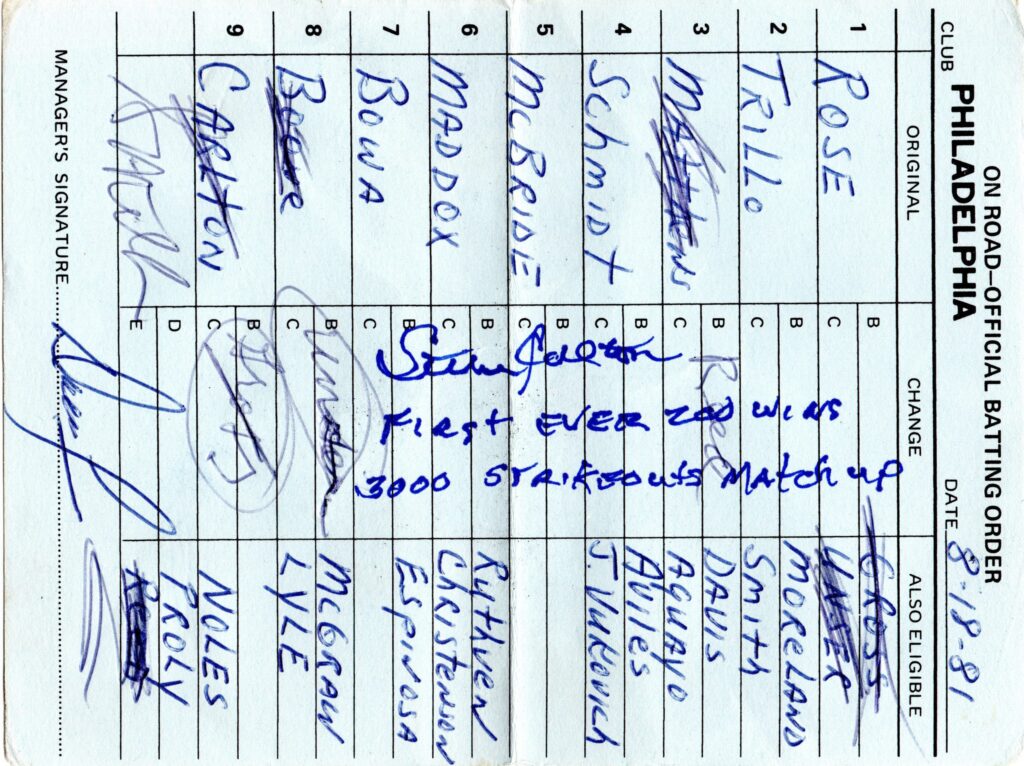 ON ROAD—OFFICIAL BATTING ORDER
CLUB PHILADELPHIA DATE 8-18-81
ORIGINAL CHANGE ALSO ELIGIBLE
1 ROSE B GROSS
C UNSER
2 TRILLO B MORELAND
C Smith
3 MATTHEWS B DAVIS
C AGUAYO
4 Schmidt B Aviles
C J. VUKOVICH
5 McBRIDE B
C
6 MADDOX B Rythven
C CHRISTENSON
7 BOWA B ESPINOSA
C
8 Boone B McGRAW
C LYLE
9 CARLTON B NOLES
C
D PROLY
E
Steve Carlton
FIRST EVER 200 WINS
3000 STRIKEOUTS MATCH UP
MANAGER'S SIGNATURE